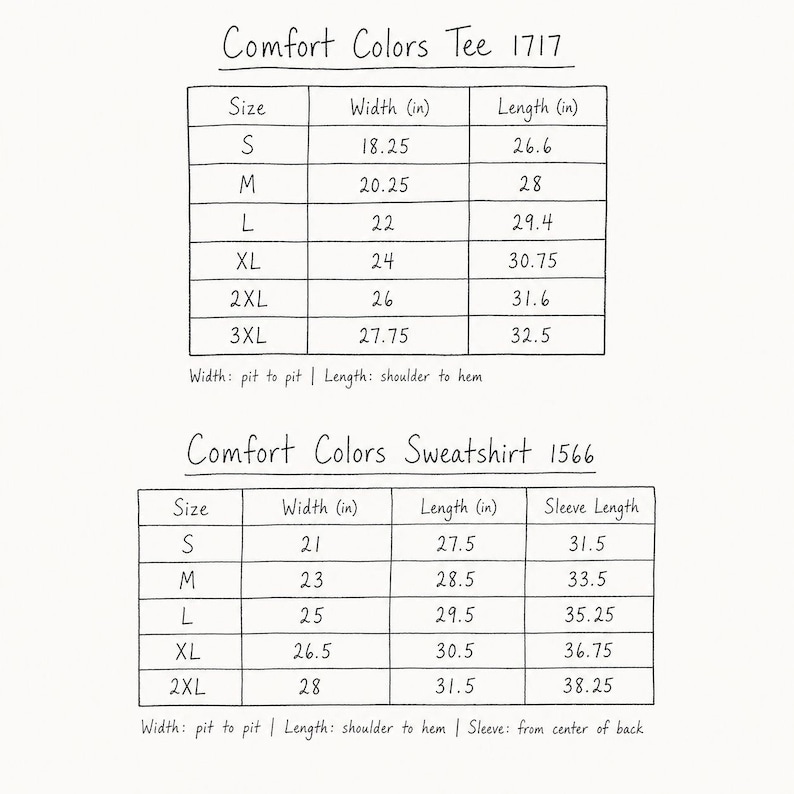 Comfort Colors Tee 1717
Size Width (in) Length (in)
S 18.25 26.6
M 20.25 28
L 22 29.4
XL 24 30.75
2XL 26 31.6
3XL 27.75 32.5
Width: pit to pit | Length: shoulder to hem
Comfort Colors Sweatshirt 1566
Size Width (in) Length (in) Sleeve Length
S 21 27.5 31.5
M 23 28.5 33.5
L 25 29.5 35.25
XL 26.5 30.5 36.75
2XL 28 31.5 38.25
Width: pit to pit | Length: shoulder to hem | Sleeve: from center of back